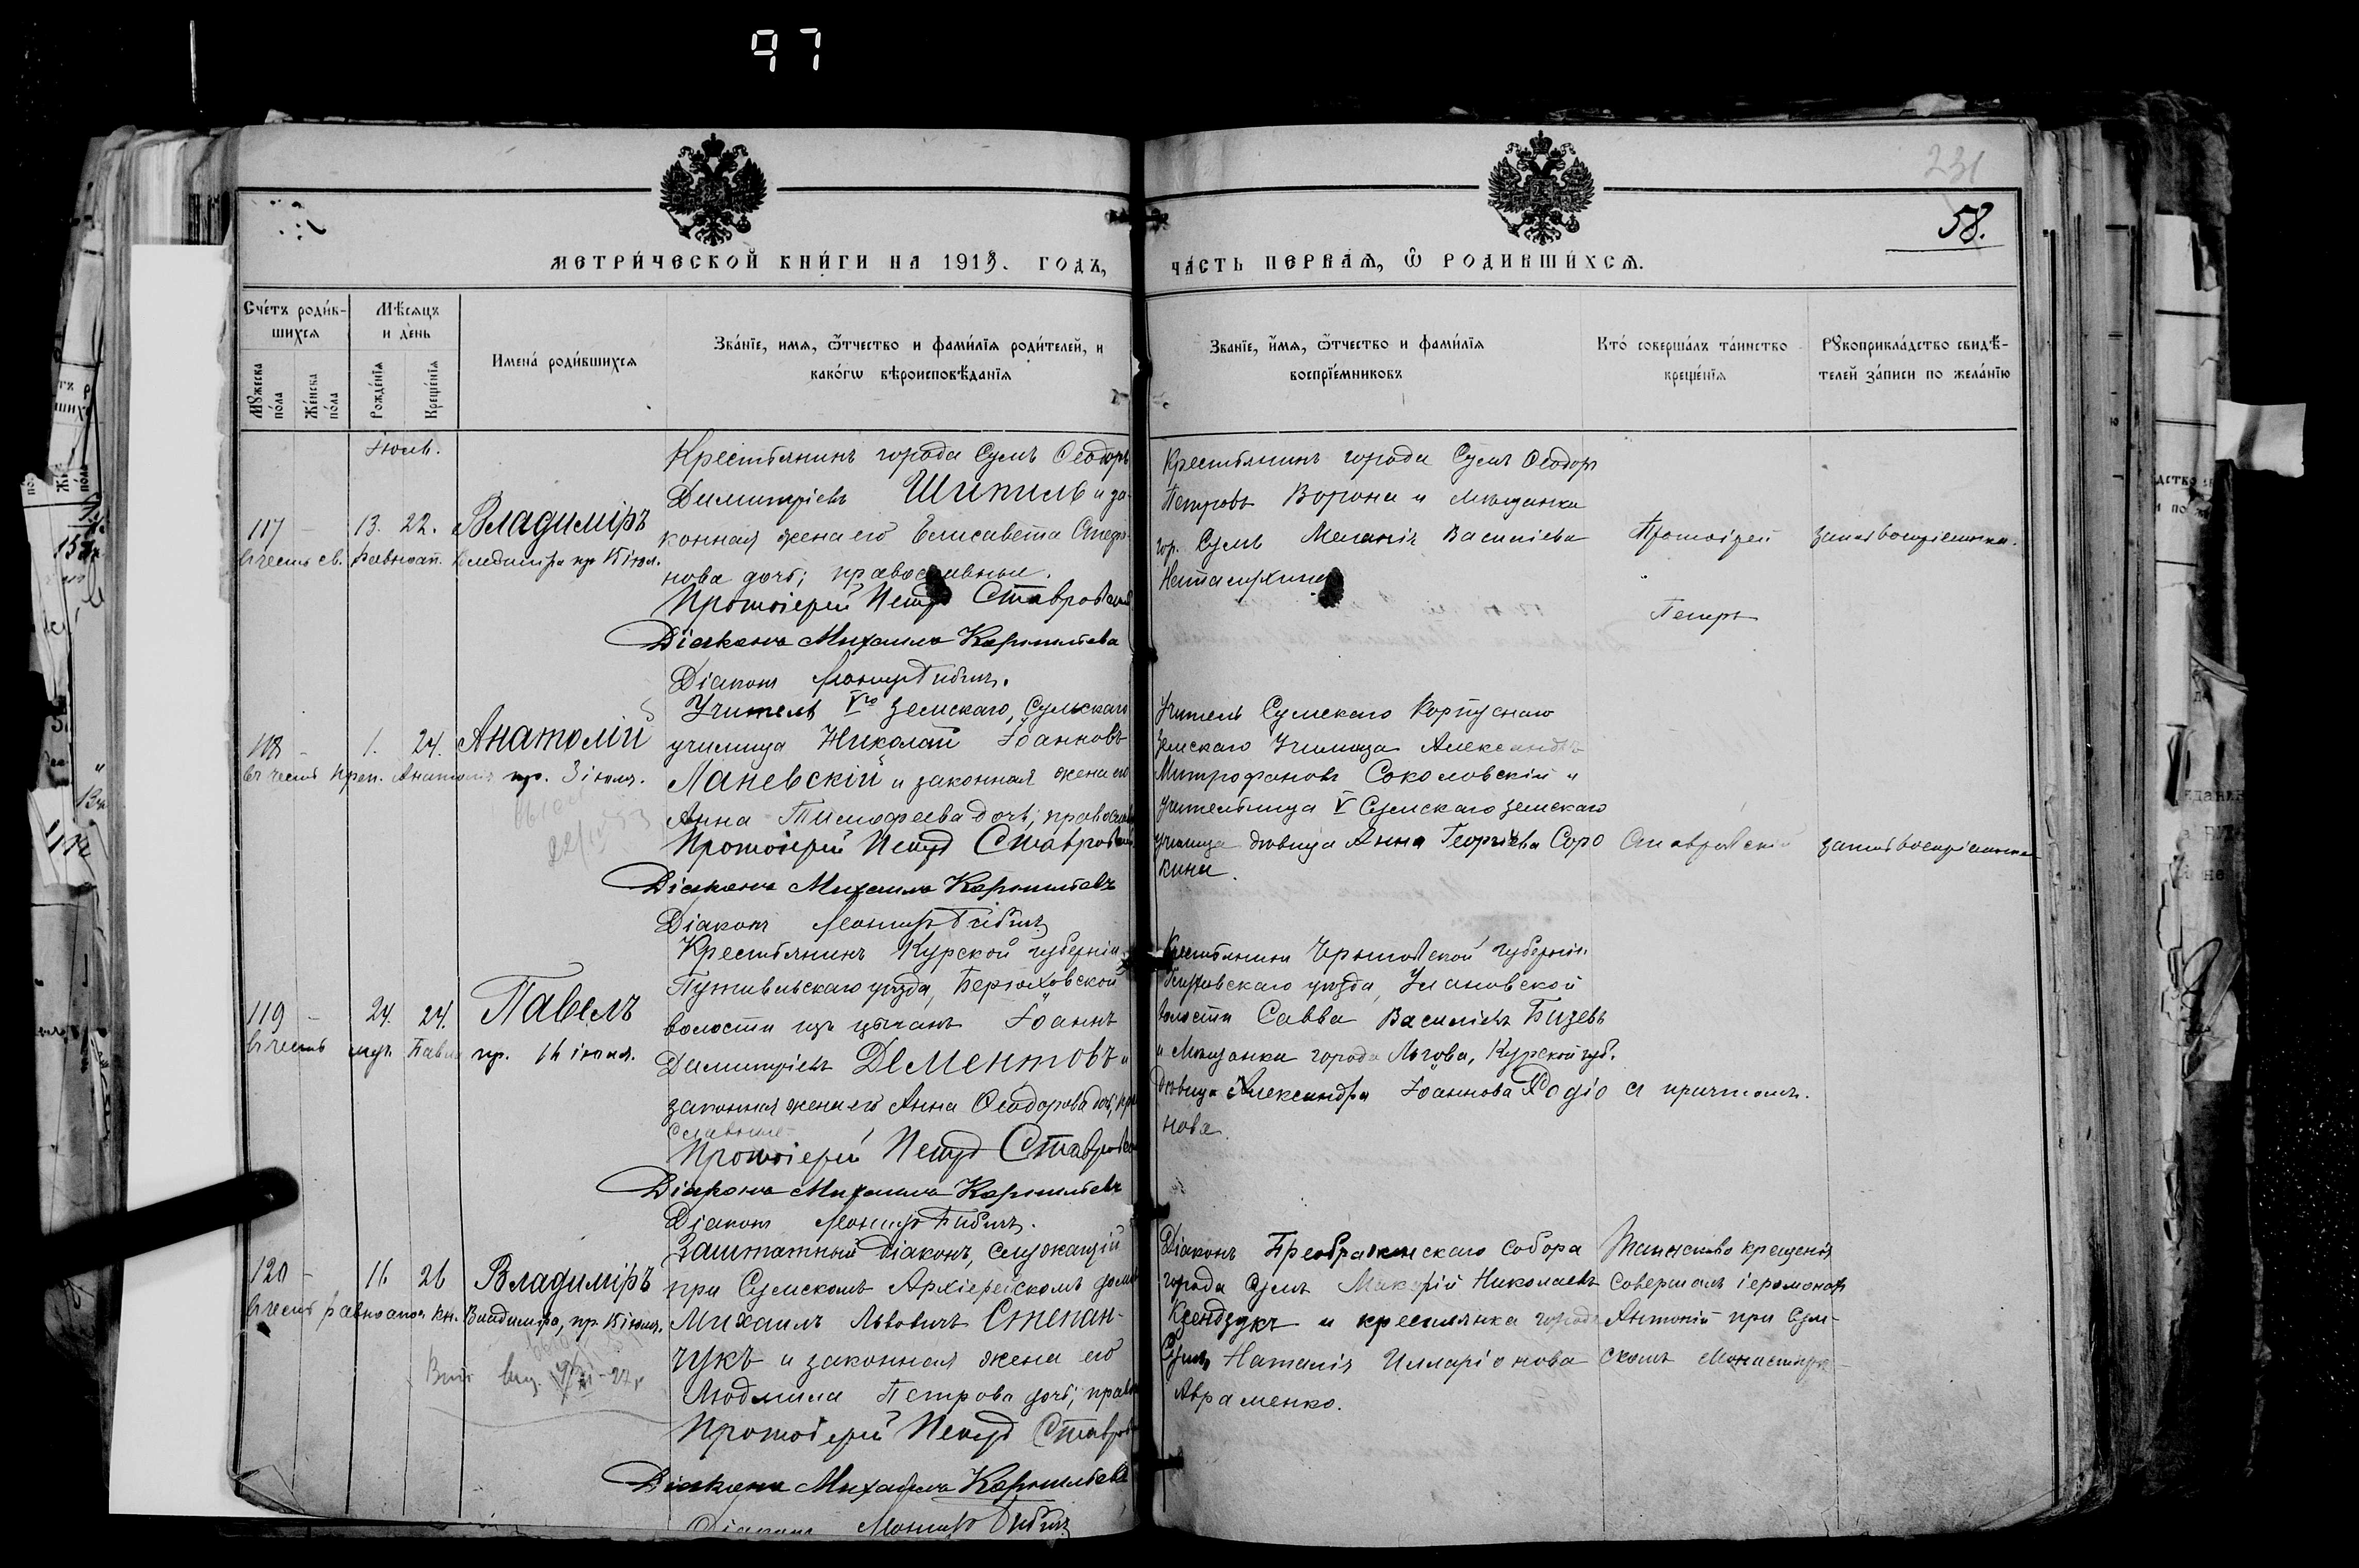 97
231
58.
МЕТРИ́ЧЕСКОЙ КНИ́ГИ НА 1913. ГОДЪ,
ЧА́СТЬ ПЕРВАѦ, Ѡ РОДИВШИ́ХСѦ.
Сче́тъ роди́в-
шихсѧ
Мꙋжеска по́ла
Же́нска по́ла
Мѣ́сѧцъ
и де́нь
Рожде́нїѧ
Креще́нїѧ
Имена́ роди́вшихсѧ
Зва́нїе, имѧ, ѻ҆́тчество и фами́лїѧ роди́телей, и
како́гѡ вѣроисповѣ́данїѧ
Зва́нїе, и҆́мѧ, ѻ҆́тчество и фами́лїѧ
воспрїе́мниковъ
Кто́ соверша́лъ та́инство
креще́нїѧ
Рꙋкоприкла́дство свидѣ́-
телей за́писи по жела́нїю
Іюль.
117 – 13. 22. Владиміръ
въ честь св. равноап. Владимира пр 15 іюл.
Крестьянинъ города Сумъ Ѳеодоръ
Димитріевъ Шипиль и за-
конная жена его Елисавета
нова дочь; православные.
Протоіерей Петръ Ставровскій
Діаконъ Михаилъ Корнильевъ
Діаконъ
Крестьянинъ города Сумъ Ѳеодоръ
Петровъ Ворона и мѣщанка
гор. Сумъ Меланія Васильева
Наталухина
Протоіерей
Петръ
118 – 1. 24. Анатолій
въ честь преп. Анатолія пр. 3 іюля.
Учитель V го земскаго, Сумскаго
училища Николай Іоанновъ
Ланевскій и законная жена его
Анна Тимофеева дочь; православные
Протоіерей Петръ Ставровскій
Діаконъ Михаилъ Корнильевъ
Діаконъ
Учитель Сумскаго
Земскаго Училища Александръ
Митрофановъ Соколовскій и
учительница V Сумскаго земскаго
училища дѣвица Анна Георгіева Соро
кина.
Ставровскій
119 – 24. 24. Павелъ
въ честь муч. Павла пр. 16 іюля.
Крестьянинъ Курской губерніи
Путивльскаго уѣзда, Берюховской
волости изъ цыганъ Іоаннъ
Димитріевъ Дементовъ и
законная жена его Анна Ѳеодорова дочь, пра
славные
Протоіерей Петръ Ставровскій
Діаконъ Михаилъ Корнильевъ
Діаконъ
Крестьянинъ Черниговской губерніи
Глуховскаго уѣзда, Улановской
волости Савва Василіевъ Бизевъ
и мѣщанка города Льгова, Курской губ.
дѣвица Александра Іоаннова Родіо
нова.
съ причтомъ.
120 – 16 26 Владиміръ
въ честь равноапос. кн. Владимира, пр. 15 іюля.
Заштатный діаконъ, служащій
при Сумскомъ Архіерейскомъ домѣ
Михаилъ Львовичъ Степан-
чукъ и законная жена его
Людмила Петрова дочь; право
Протоіерей Петръ Ставровскій
Діаконъ Михаилъ Корнильевъ
Діаконъ
Діаконъ Преображенскаго Собора
города Сумъ Макарій Николаевъ
Ксендзукъ и крестьянка города
Сумъ Наталія Илларіонова
Авраменко.
Таинство крещенія
совершалъ іеромонах
Антоній при Сум-
скомъ Монастырѣ